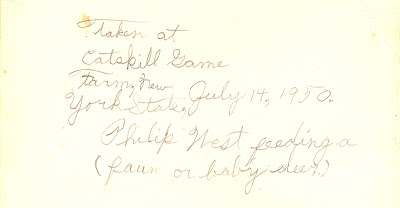 Taken at
Catskill Game
Farm, New
York State, July 14, 1950.
Philip West feeding a
(faun or baby deer.)